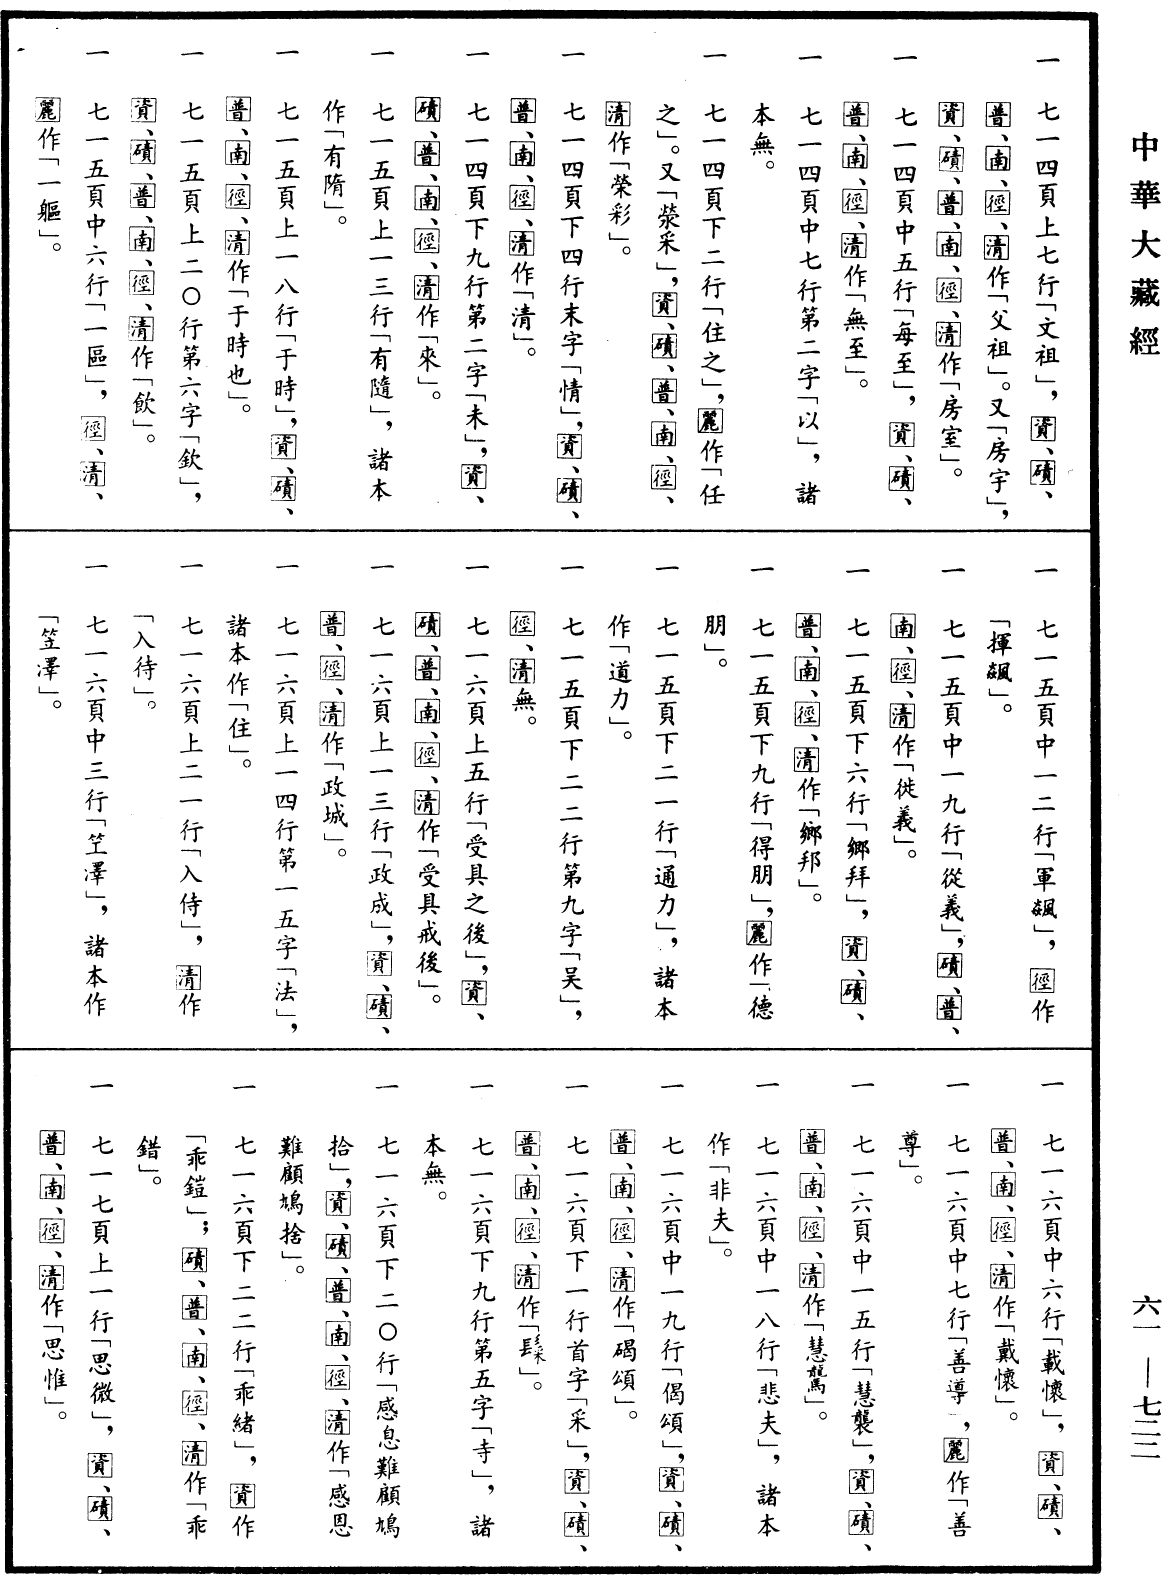 中華大藏經
一　七一四頁上七行「文祖」，資、磧、
普、南、徑、清作「父祖」。又「房宇」，
資、磧、普、南、徑、清作「房室」。
一　七一四頁中五行「每至」，資、磧、
普、南、徑、清作「無至」。
一　七一四頁中七行第二字「以」，諸
本無。
一　七一四頁下二行「住之」，麗作「任
之」。又「熒采」，資、磧、普、南、徑、
清作「榮彩」。
一　七一四頁下四行末字「情」，資、磧、
普、南、徑、清作「清」。
一　七一四頁下九行第二字「未」，資、
磧、普、南、徑、清作「來」。
一　七一五頁上一三行「有隨」，諸本
作「有隋」。
一　七一五頁上一八行「于時」，資、磧、
普、南、徑、清作「于時也」。
一　七一五頁上二〇行第六字「欽」，
資、磧、普、南、徑、清作「飲」。
一　七一五頁中六行「一區」，徑、清、
麗作「一軀」。
一　七一五頁中一二行「軍飆」，徑作
「揮飆」。
一　七一五頁中一九行「從義」，磧、普、
南、徑、清作「徙義」。
一　七一五頁下六行「鄉拜」，資、磧、
普、南、徑、清作「鄉邦」。
一　七一五頁下九行「得朋」，麗作「德
朋」。
一　七一五頁下二一行「通力」，諸本
作「道力」。
一　七一五頁下二二行第九字「吴」，
徑、清無。
一　七一六頁上五行「受具之後」，資、
磧、普、南、徑、清作「受具戒後」。
一　七一六頁上一三行「政成」，資、磧、
普、徑、清作「政城」。
一　七一六頁上一四行第一五字「法」，
諸本作「住」。
一　七一六頁上二一行「入侍」，清作
「入待」。
一　七一六頁中三行「笁澤」，諸本作
「笠澤」。
一　七一六頁中六行「載懷」，資、磧、
普、南、徑、清作「戴懷」。
一　七一六頁中七行「善導」，麗作「善
尊」。
一　七一六頁中一五行「慧襲」，資、磧、
普、南、徑、清作「慧驚」。
一　七一六頁中一八行「悲夫」，諸本
作「非夫」。
一　七一六頁中一九行「偈頌」，資、磧、
普、南、徑、清作「碣頌」。
一　七一六頁下一行首字「采」，資、磧、
普、南、徑、清作「髹」。
一　七一六頁下九行第五字「寺」，諸
本無。
一　七一六頁下二〇行「感息難顧鳩
拾」，資、磧、普、南、徑、清作「感恩
難顧鳩捨」。
一　七一六頁下二二行「乖緒」，資作
「乖鎧」；磧、普、南、徑、清作「乖
錯」。
一　七一七頁上一行「思微」，資、磧、
普、南、徑、清作「思惟」。
六一—七二二